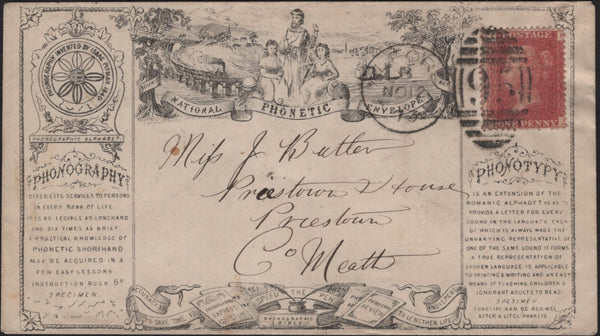 PHONOGRAPHY INVENTED BY ISAAC PITMAN
PHONOGRAPHIC ALPHABET.
NATIONAL PHONETIC ENVELOPE
NO 12
POSTAGE
ONE PENNY
PHONOGRAPHY
OFFERS ITS SERVICES TO PERSONS
IN EVERY RANK OF LIFE
IT IS AS LEGIBLE AS LONGHAND
AND SIX TIMES AS BRIEF.
A PRACTICAL KNOWLEDGE OF
PHONETIC SHORTHAND
MAY BE ACQUIRED IN A
FEW EASY LESSONS
INSTRUCTION BOOK 6D
SPECIMEN.
Miss J Butler
Priestown House
Priestown
Co Meath
PHONOTYPY
IS AN EXTENSION OF THE
ROMANIC ALPHABET, SO AS TO
PROVIDE A LETTER FOR EVERY
SOUND IN THE LANGUAGE EACH
OF WHICH IS ALWAYS MADE THE
UNVARYING REPRESENTATIVE OF
ONE OF THE SAME SOUND. IT FORMS
A TRUE REPRESENTATION OF
SPOKEN LANGUAGE IS APPLICABLE
TO PRINTING & WRITING AND AN EASY
MEANS OF TEACHING CHILDREN &
IGNORANT ADULTS TO READ
SPECIMEN
TO SAVE TIME
SPEED THE PEN
PHONOGRAPHIC
BIBLE
REVIEW
TO LENGTHEN LIFE